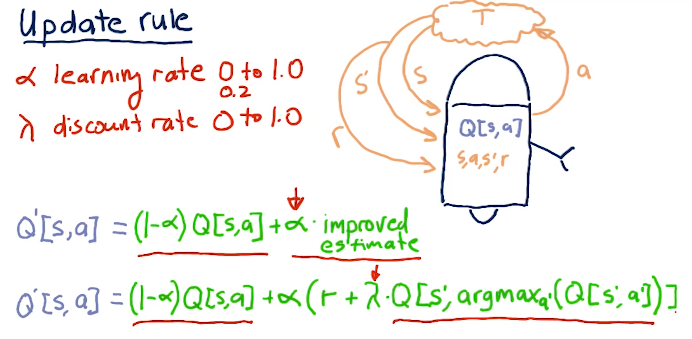 Update rule
α learning rate 0 to 1.0
0.2
λ discount rate 0 to 1.0
T
s'
s
a
r
Q[s,a]
s,a,s',r
Q'[s,a] = (1-α) Q[s,a] + α · improved
estimate
Q'[s,a] = (1-α)Q[s,a] + α(r + λ·Q[s', argmaxa'(Q[s',a'])]